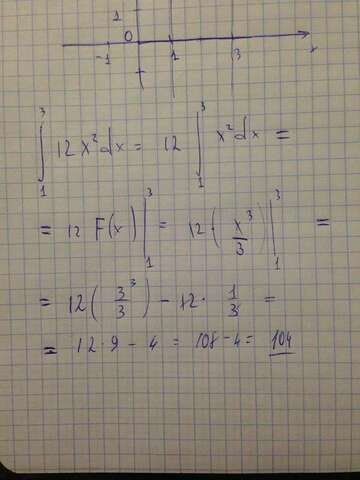 1
0
-1 1 3 x
∫₁³ 12 x² dx = 12 ∫₁³ x² dx =
= 12 F(x) |₁³ = 12 · (x³/3) |₁³ =
= 12 (3³/3) - 12 · 1/3 =
= 12 · 9 - 4 = 108 - 4 = 104